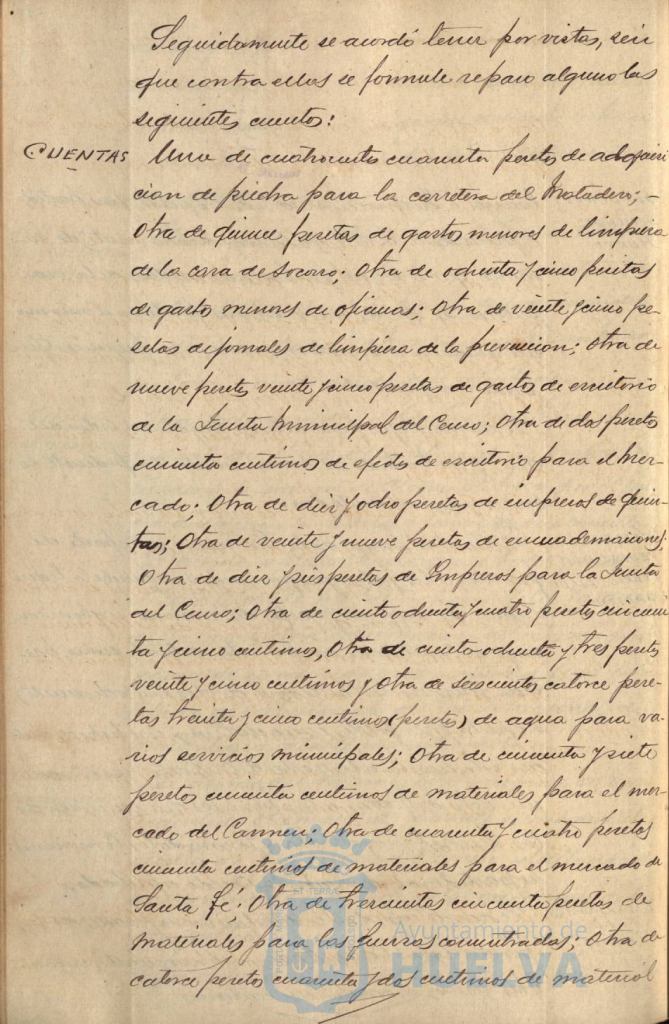 Seguidamente se acordó tener por vistas, sin
que contra ellas se formule reparo alguno las
siguientes cuentas:
CUENTAS Una de cuatrocientas cuarenta pesetas de adquisi
cion de piedra para la carretera del Matadero; -
Otra de quince pesetas de gastos menores de limpieza
de la casa de Socorro; Otra de ochenta y cinco pesetas
de gastos menores de oficinas; Otra de veinte y cinco pe-
setas de jornales de limpieza de la prevencion; Otra de
nueve pesetas veinte y cinco pesetas de gastos de escritorio
de la Junta Municipal del Censo; Otra de dos pesetas
cincuenta centimos de efectos de escritorio para el Mer-
cado; Otra de diez y ocho pesetas de impresos de Quin-
tas; Otra de veinte y nueve pesetas de encuadernaciones;
Otra de diez y seis pesetas de Impresos para la Junta
del Censo; Otra de ciento ochenta y cuatro pesetas cincuen
ta y cinco centimos, Otra de ciento ochenta y tres pesetas
veinte y cinco centimos y Otra de seiscientos catorce pese-
tas treinta y cinco centimos (pesetas) de agua para va-
rios servicios municipales; Otra de cincuenta y siete
pesetas cincuenta centimos de materiales para el mer-
cado del Carmen; Otra de cuarenta y cuatro pesetas
cincuenta centimos de materiales para el mercado de
Santa Fé; Otra de trescientas cincuenta pesetas de
materiales para las fuerzas concentradas; Otra de
catorce pesetas cuarenta y dos centimos de material
Ayuntamiento de
HUELVA